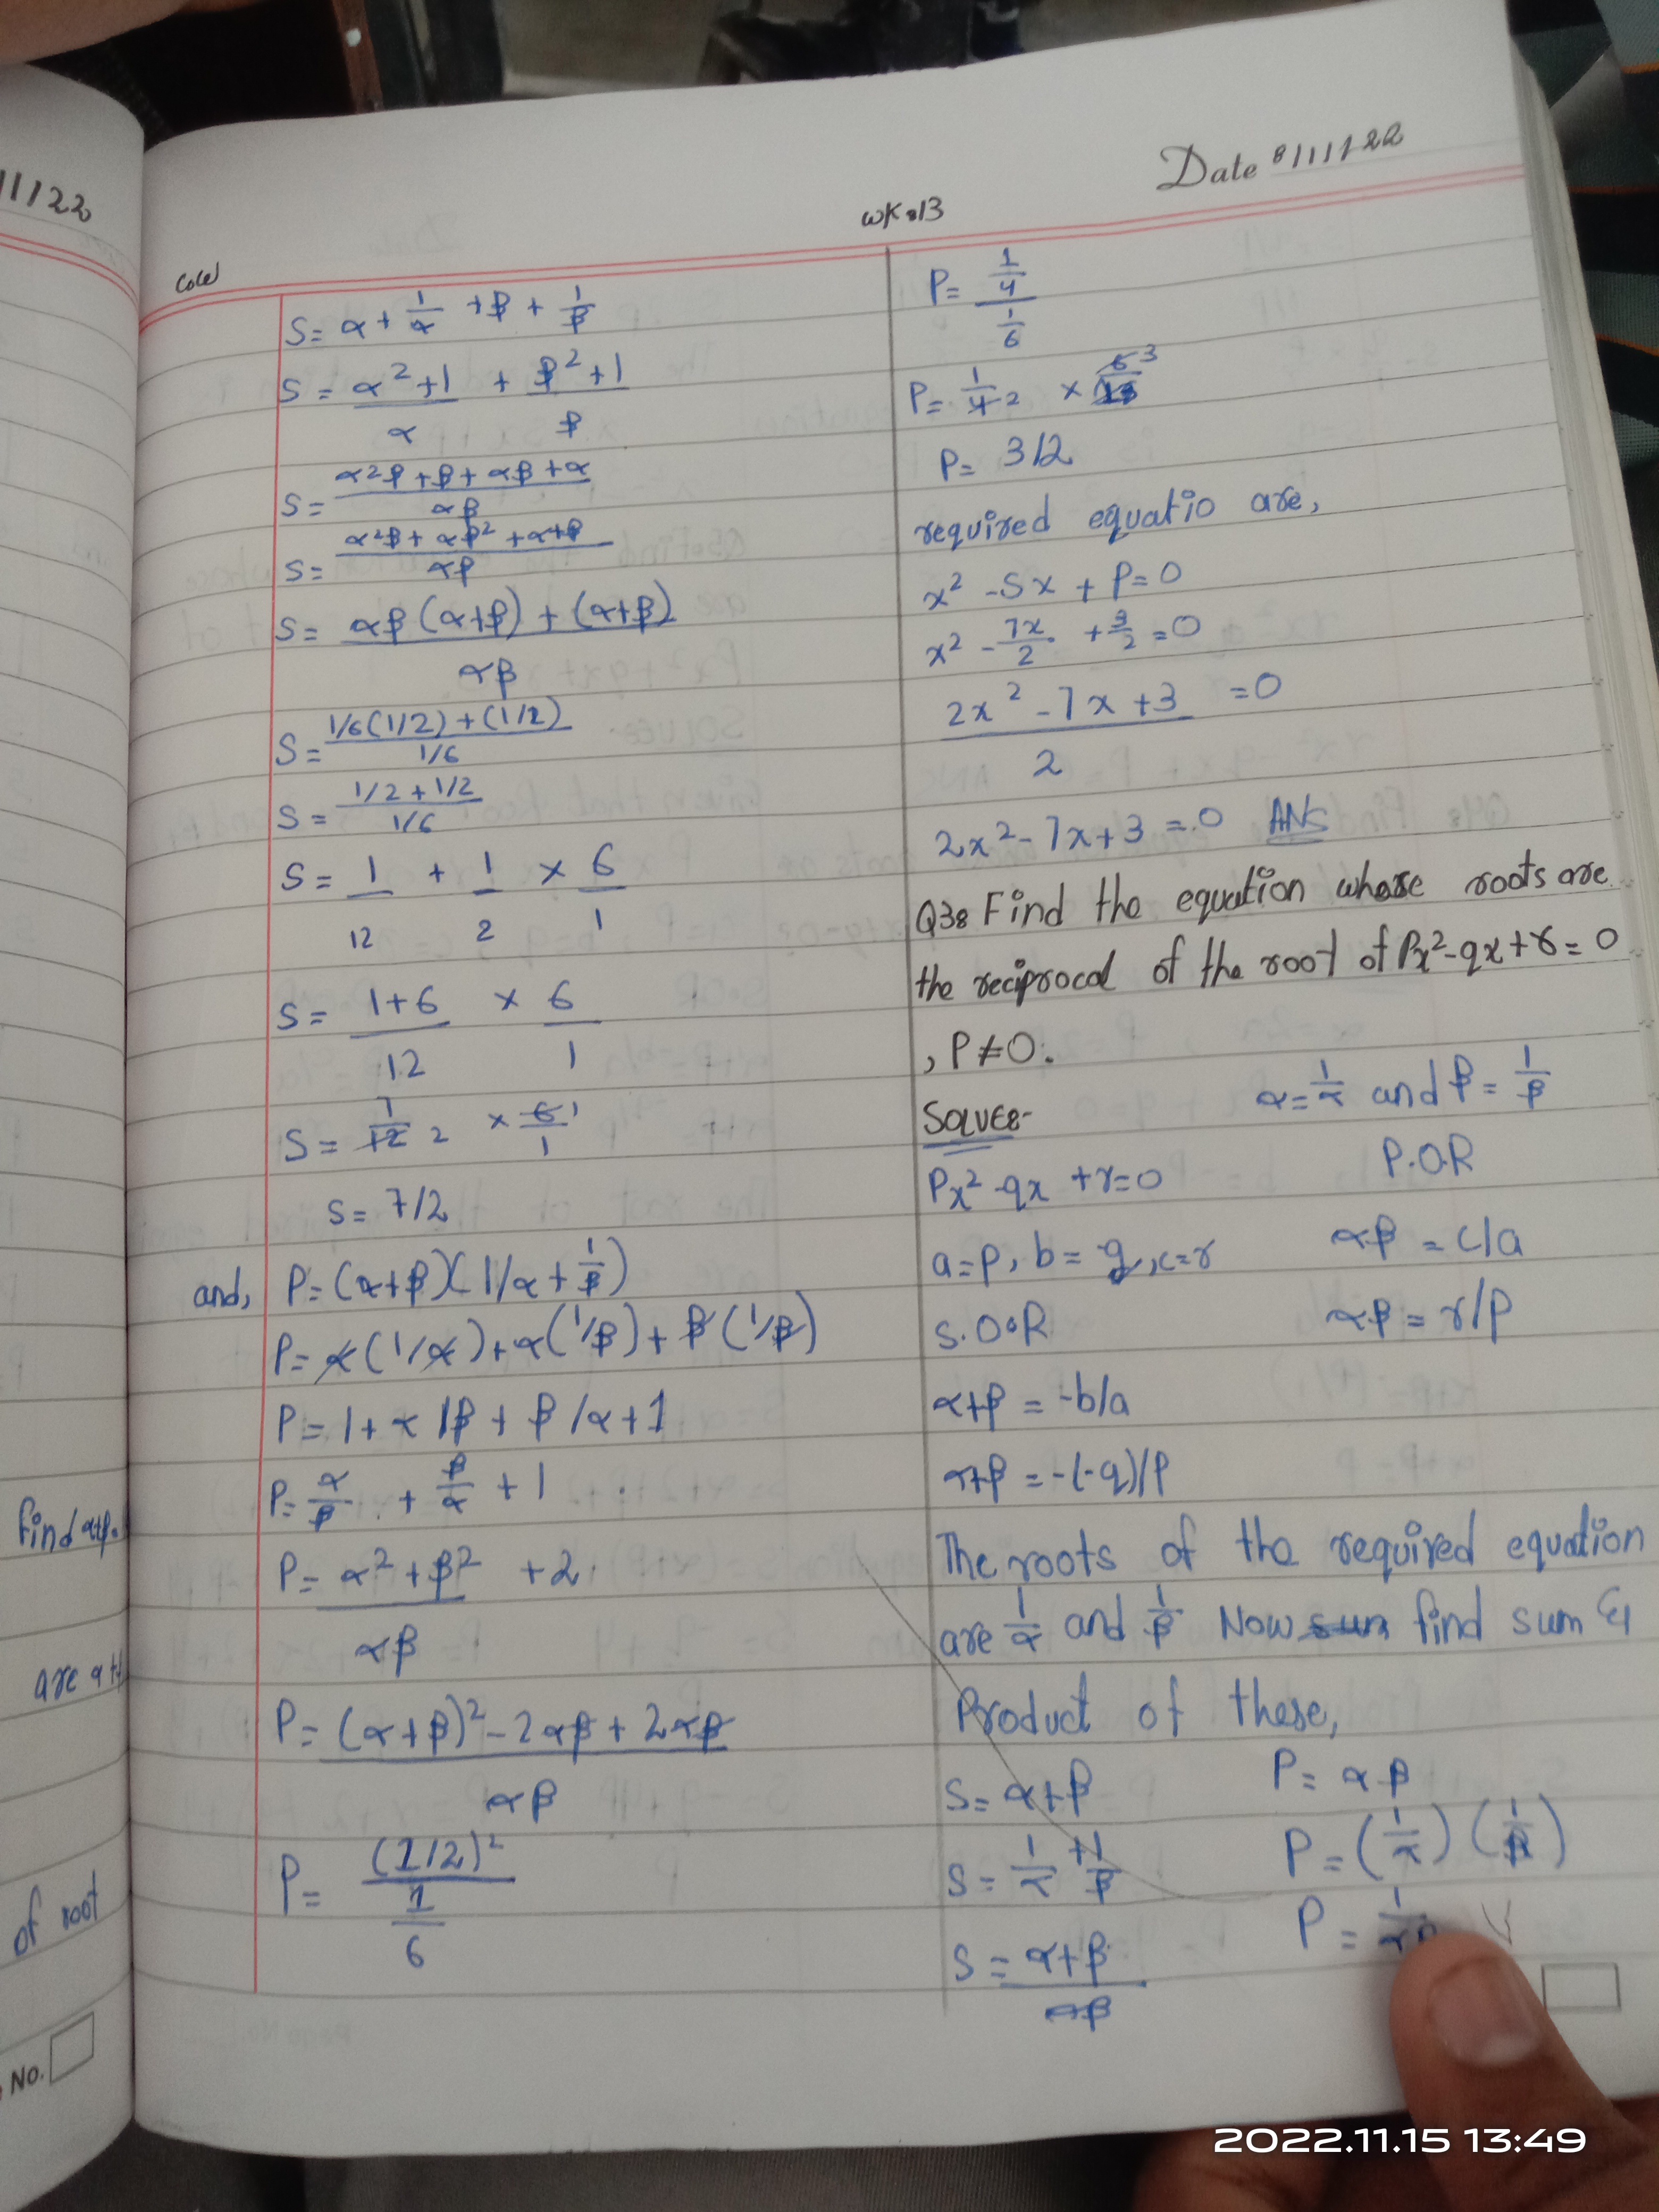 11/22
find α+β.
are α+
of root
No.
Date 8/11/22
WK:13
C.W
S= α + 1/α + β + 1/β
S = α²+1/α + β²+1/β
S= α²β + β + αβ + α/αβ
S= α²β + αβ² + α+β/αβ
S= αβ (α+β) + (α+β)/αβ
S= 1/6(1/2) + (1/2)/1/6
S= 1/2 + 1/2/1/6
S= 1/12 + 1/2 × 6/1
S= 1+6/12 × 6/1
S= 7/12 2 × 6/1 1
S= 7/2
and, P= (α+β)(1/α + 1/β)
P= α(1/α) + α(1/β) + β(1/β)
P= 1 + α/β + β/α + 1
P= α/β + β/α + 1
P= α² + β²/αβ + 2
P= (α+β)² - 2αβ + 2αβ/αβ
P= (1/2)²/1/6
P= 1/4/1/6
P= 1/4 2 × 6 3
P= 3/2
required equatio are,
x² - Sx + P = 0
x² - 7x/2 + 3/2 = 0
2x² - 7x + 3/2 = 0
2x² - 7x + 3 = 0 ANS
Q3: Find the equation whose roots are
the reciprocal of the root of Px² - qx + r = 0
, P ≠ 0.
SOLVE:-
α = 1/α and β = 1/β
Px² - qx + r = 0
P.O.R
a = p, b = q, c = r
αβ = c/a
S.O.R
αβ = r/p
α+β = -b/a
α+β = -(-q)/P
The roots of the required equation
are 1/α and 1/β Now sum find sum &
Product of these,
S= α+β
P= αβ
S= 1/α + 1/β
P= (1/α) (1/β)
S= α+β/αβ
P= 1/αβ
2022.11.15 13:49